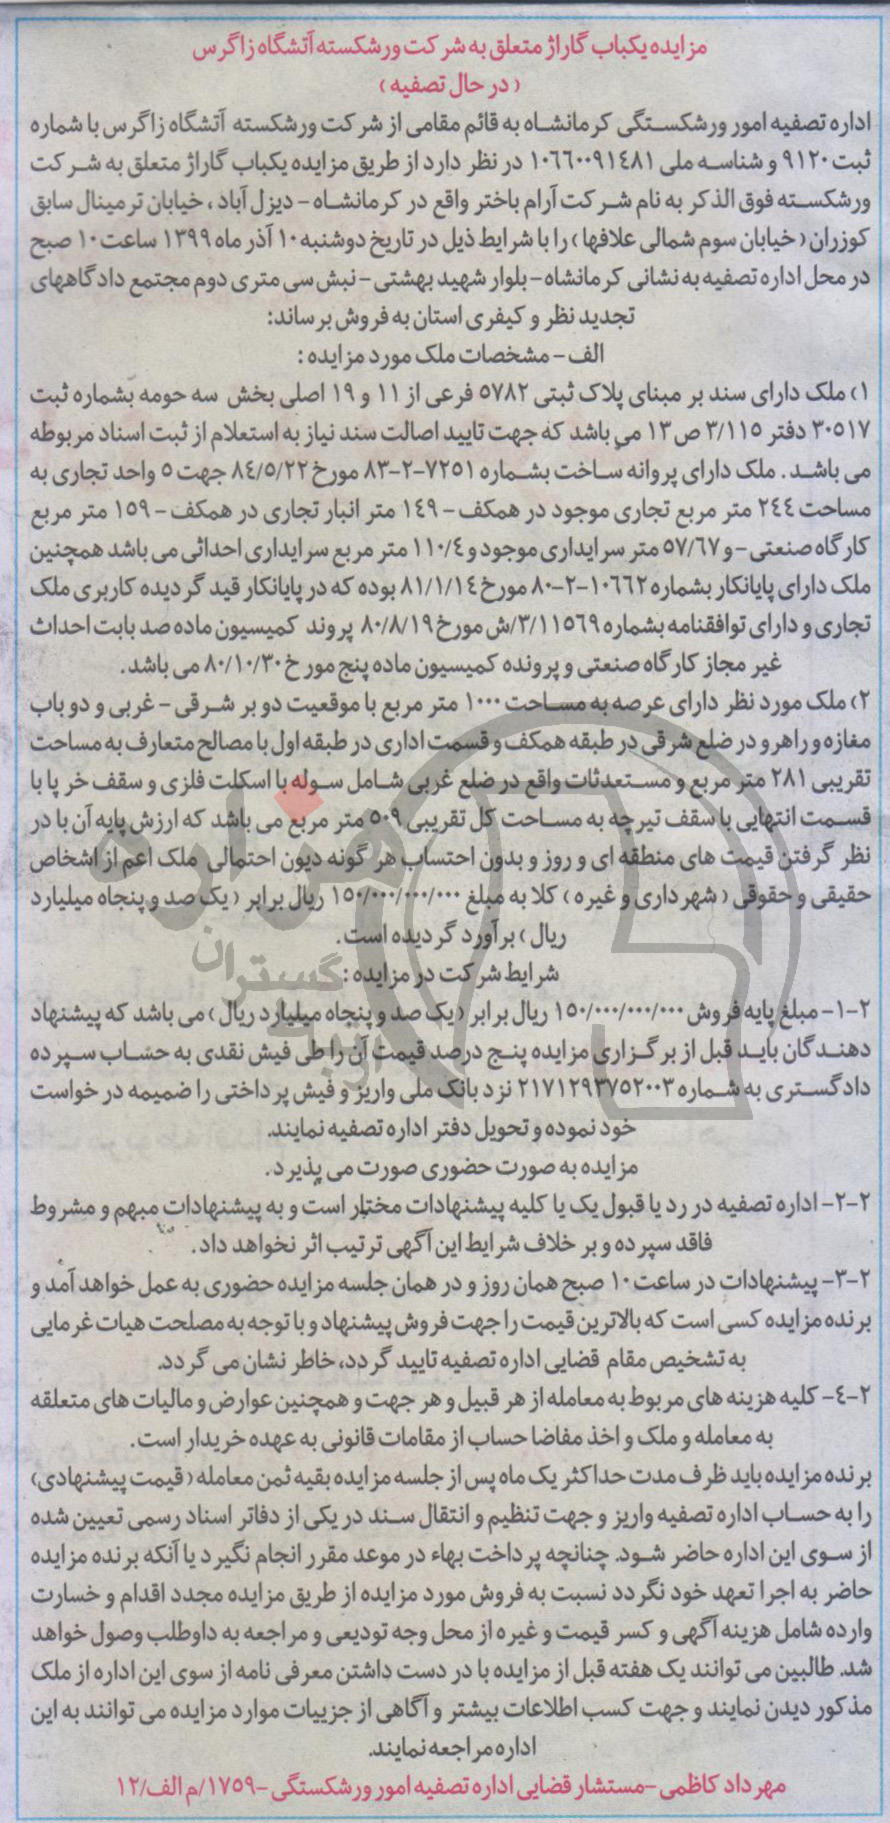 مزایده یکباب گاراژ متعلق به شرکت ورشکسته آتشگاه زاگرس
( در حال تصفیه )
اداره تصفیه امور ورشکستگی کرمانشاه به قائم مقامی از شرکت ورشکسته آتشگاه زاگرس با شماره
ثبت ۹۱۲۰ و شناسه ملی ۱۰۶۶۰۰۹۱۴۸۱ در نظر دارد از طریق مزایده یکباب گاراژ متعلق به شرکت
ورشکسته فوق الذکر به نام شرکت آرام باختر واقع در کرمانشاه - دیزل آباد ، خیابان ترمینال سابق
کوزران ( خیابان سوم شمالی علافها ) را با شرایط ذیل در تاریخ دوشنبه ۱۰ آذر ماه ۱۳۹۹ ساعت ۱۰ صبح
در محل اداره تصفیه به نشانی کرمانشاه - بلوار شهید بهشتی - نبش سی متری دوم مجتمع دادگاههای
تجدید نظر و کیفری استان به فروش برساند:
الف - مشخصات ملک مورد مزایده :
۱) ملک دارای سند بر مبنای پلاک ثبتی ۵۷۸۲ فرعی از ۱۱ و ۱۹ اصلی بخش سه حومه بشماره ثبت
۳۰۵۱۷ دفتر ۳/۱۱۵ ص ۱۳ می باشد که جهت تایید اصالت سند نیاز به استعلام از ثبت اسناد مربوطه
می باشد . ملک دارای پروانه ساخت بشماره ۷۲۵۱-۲-۸۳ مورخ ۸۴/۵/۲۲ جهت ۵ واحد تجاری به
مساحت ۲۴۴ متر مربع تجاری موجود در همکف - ۱۴۹ متر انبار تجاری در همکف - ۱۵۹ متر مربع
کارگاه صنعتی - و ۵۷/۶۷ متر سرایداری موجود و ۱۱۰/۴ متر مربع سرایداری احداثی می باشد همچنین
ملک دارای پایانکار بشماره ۱۰۶۶۲-۲-۸۰ مورخ ۸۱/۱/۱۴ بوده که در پایانکار قید گردیده کاربری ملک
تجاری و دارای توافقنامه بشماره ۳/۱۱۵۶۹/ش مورخ ۸۰/۸/۱۹ پروند کمیسیون ماده صد بابت احداث
غیر مجاز کارگاه صنعتی و پرونده کمیسیون ماده پنج مورخ ۸۰/۱۰/۳۰ می باشد.
۲) ملک مورد نظر دارای عرصه به مساحت ۱۰۰۰ متر مربع با موقعیت دو بر شرقی - غربی و دو باب
مغازه و راهرو در ضلع شرقی در طبقه همکف و قسمت اداری در طبقه اول با مصالح متعارف به مساحت
تقریبی ۲۸۱ متر مربع و مستعدثات واقع در ضلع غربی شامل سوله با اسکلت فلزی و سقف خرپا با
قسمت انتهایی با سقف تیرچه به مساحت کل تقریبی ۵۰۹ متر مربع می باشد که ارزش پایه آن با در
نظر گرفتن قیمت های منطقه ای و روز و بدون احتساب هر گونه دیون احتمالی ملک اعم از اشخاص
حقیقی و حقوقی ( شهرداری و غیره ) کلا به مبلغ ۱۵۰/۰۰۰/۰۰۰/۰۰۰ ریال برابر ( یک صد و پنجاه میلیارد
ریال ) برآورد گردیده است.
شرایط شرکت در مزایده :
۲-۱- مبلغ پایه فروش ۱۵۰/۰۰۰/۰۰۰/۰۰۰ ریال برابر ( یک صد و پنجاه میلیارد ریال ) می باشد که پیشنهاد
دهندگان باید قبل از برگزاری مزایده پنج درصد قیمت آن را طی فیش نقدی به حساب سپرده
دادگستری به شماره ۲۱۷۱۲۹۳۷۵۲۰۰۳ نزد بانک ملی واریز و فیش پرداختی را ضمیمه درخواست
خود نموده و تحویل دفتر اداره تصفیه نمایند.
مزایده به صورت حضوری صورت می پذیرد.
۲-۲- اداره تصفیه در رد یا قبول یک یا کلیه پیشنهادات مختار است و به پیشنهادات مبهم و مشروط
فاقد سپرده و بر خلاف شرایط این آگهی ترتیب اثر نخواهد داد.
۲-۳- پیشنهادات در ساعت ۱۰ صبح همان روز و در همان جلسه مزایده حضوری به عمل خواهد آمد و
برنده مزایده کسی است که بالاترین قیمت را جهت فروش پیشنهاد و با توجه به مصلحت هیات غرمایی
به تشخیص مقام قضایی اداره تصفیه تایید گردد، خاطر نشان می گردد.
۲-۴- کلیه هزینه های مربوط به معامله از هر قبیل و هر جهت و همچنین عوارض و مالیات های متعلقه
به معامله و ملک و اخذ مفاصا حساب از مقامات قانونی به عهده خریدار است.
برنده مزایده باید ظرف مدت حداکثر یک ماه پس از جلسه مزایده بقیه ثمن معامله ( قیمت پیشنهادی)
را به حساب اداره تصفیه واریز و جهت تنظیم و انتقال سند در یکی از دفاتر اسناد رسمی تعیین شده
از سوی این اداره حاضر شود. چنانچه پرداخت بهاء در موعد مقرر انجام نگیرد یا آنکه برنده مزایده
حاضر به اجرا تعهد خود نگردد نسبت به فروش مورد مزایده از طریق مزایده مجدد اقدام و خسارت
وارده شامل هزینه آگهی و کسر قیمت و غیره از محل وجه تودیعی و مراجعه به داوطلب وصول خواهد
شد. طالبین می توانند یک هفته قبل از مزایده با در دست داشتن معرفی نامه از سوی این اداره از ملک
مذکور دیدن نمایند و جهت کسب اطلاعات بیشتر و آگاهی از جزییات موارد مزایده می توانند به این
اداره مراجعه نمایند.
مهرداد کاظمی - مستشار قضایی اداره تصفیه امور ورشکستگی - ۱۷۵۹/م الف/۱۲